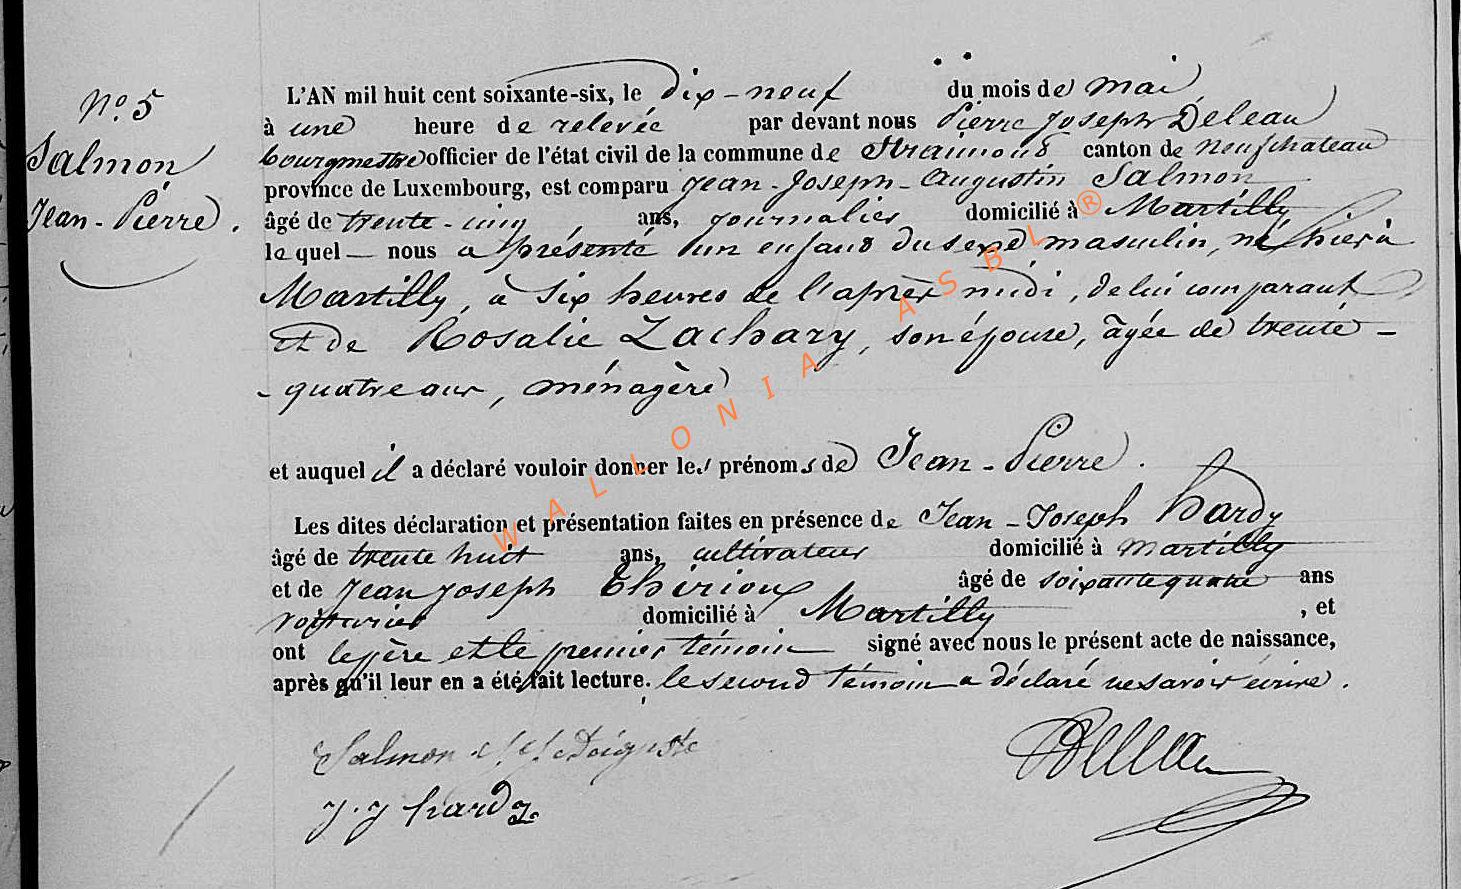 N° 5
Salmon
Jean-Pierre.
L'AN mil huit cent soixante-six, le dix-neuf du mois de mai
à une heure de relevée par devant nous Pierre Joseph Deleau
bourgmestre officier de l'état civil de la commune de Straimont canton de Neufchateau
province de Luxembourg, est comparu Jean-Joseph-Augustin Salmon
âgé de trente-cinq ans, journalier domicilié à Martilly
le quel — nous a présenté un enfant du sexe masculin, né hier à
Martilly, à six heures de l'après midi, de lui comparant
et de Rosalie Zachary, son épouse, âgée de trente-
-quatre ans, ménagère
et auquel il a déclaré vouloir donner les prénoms de Jean-Pierre.
Les dites déclaration et présentation faites en présence de Jean-Joseph hardy
âgé de trente huit ans, cultivateur domicilié à martilly
et de Jean Joseph Thirioux âgé de soixante quatre ans
voiturier domicilié à Martilly, et
ont le père et le premier témoin signé avec nous le présent acte de naissance,
après qu'il leur en a été fait lecture. le second témoin a déclaré ne savoir écrire.
Salmon
J. J hardy
WALLONIA ASBL ®